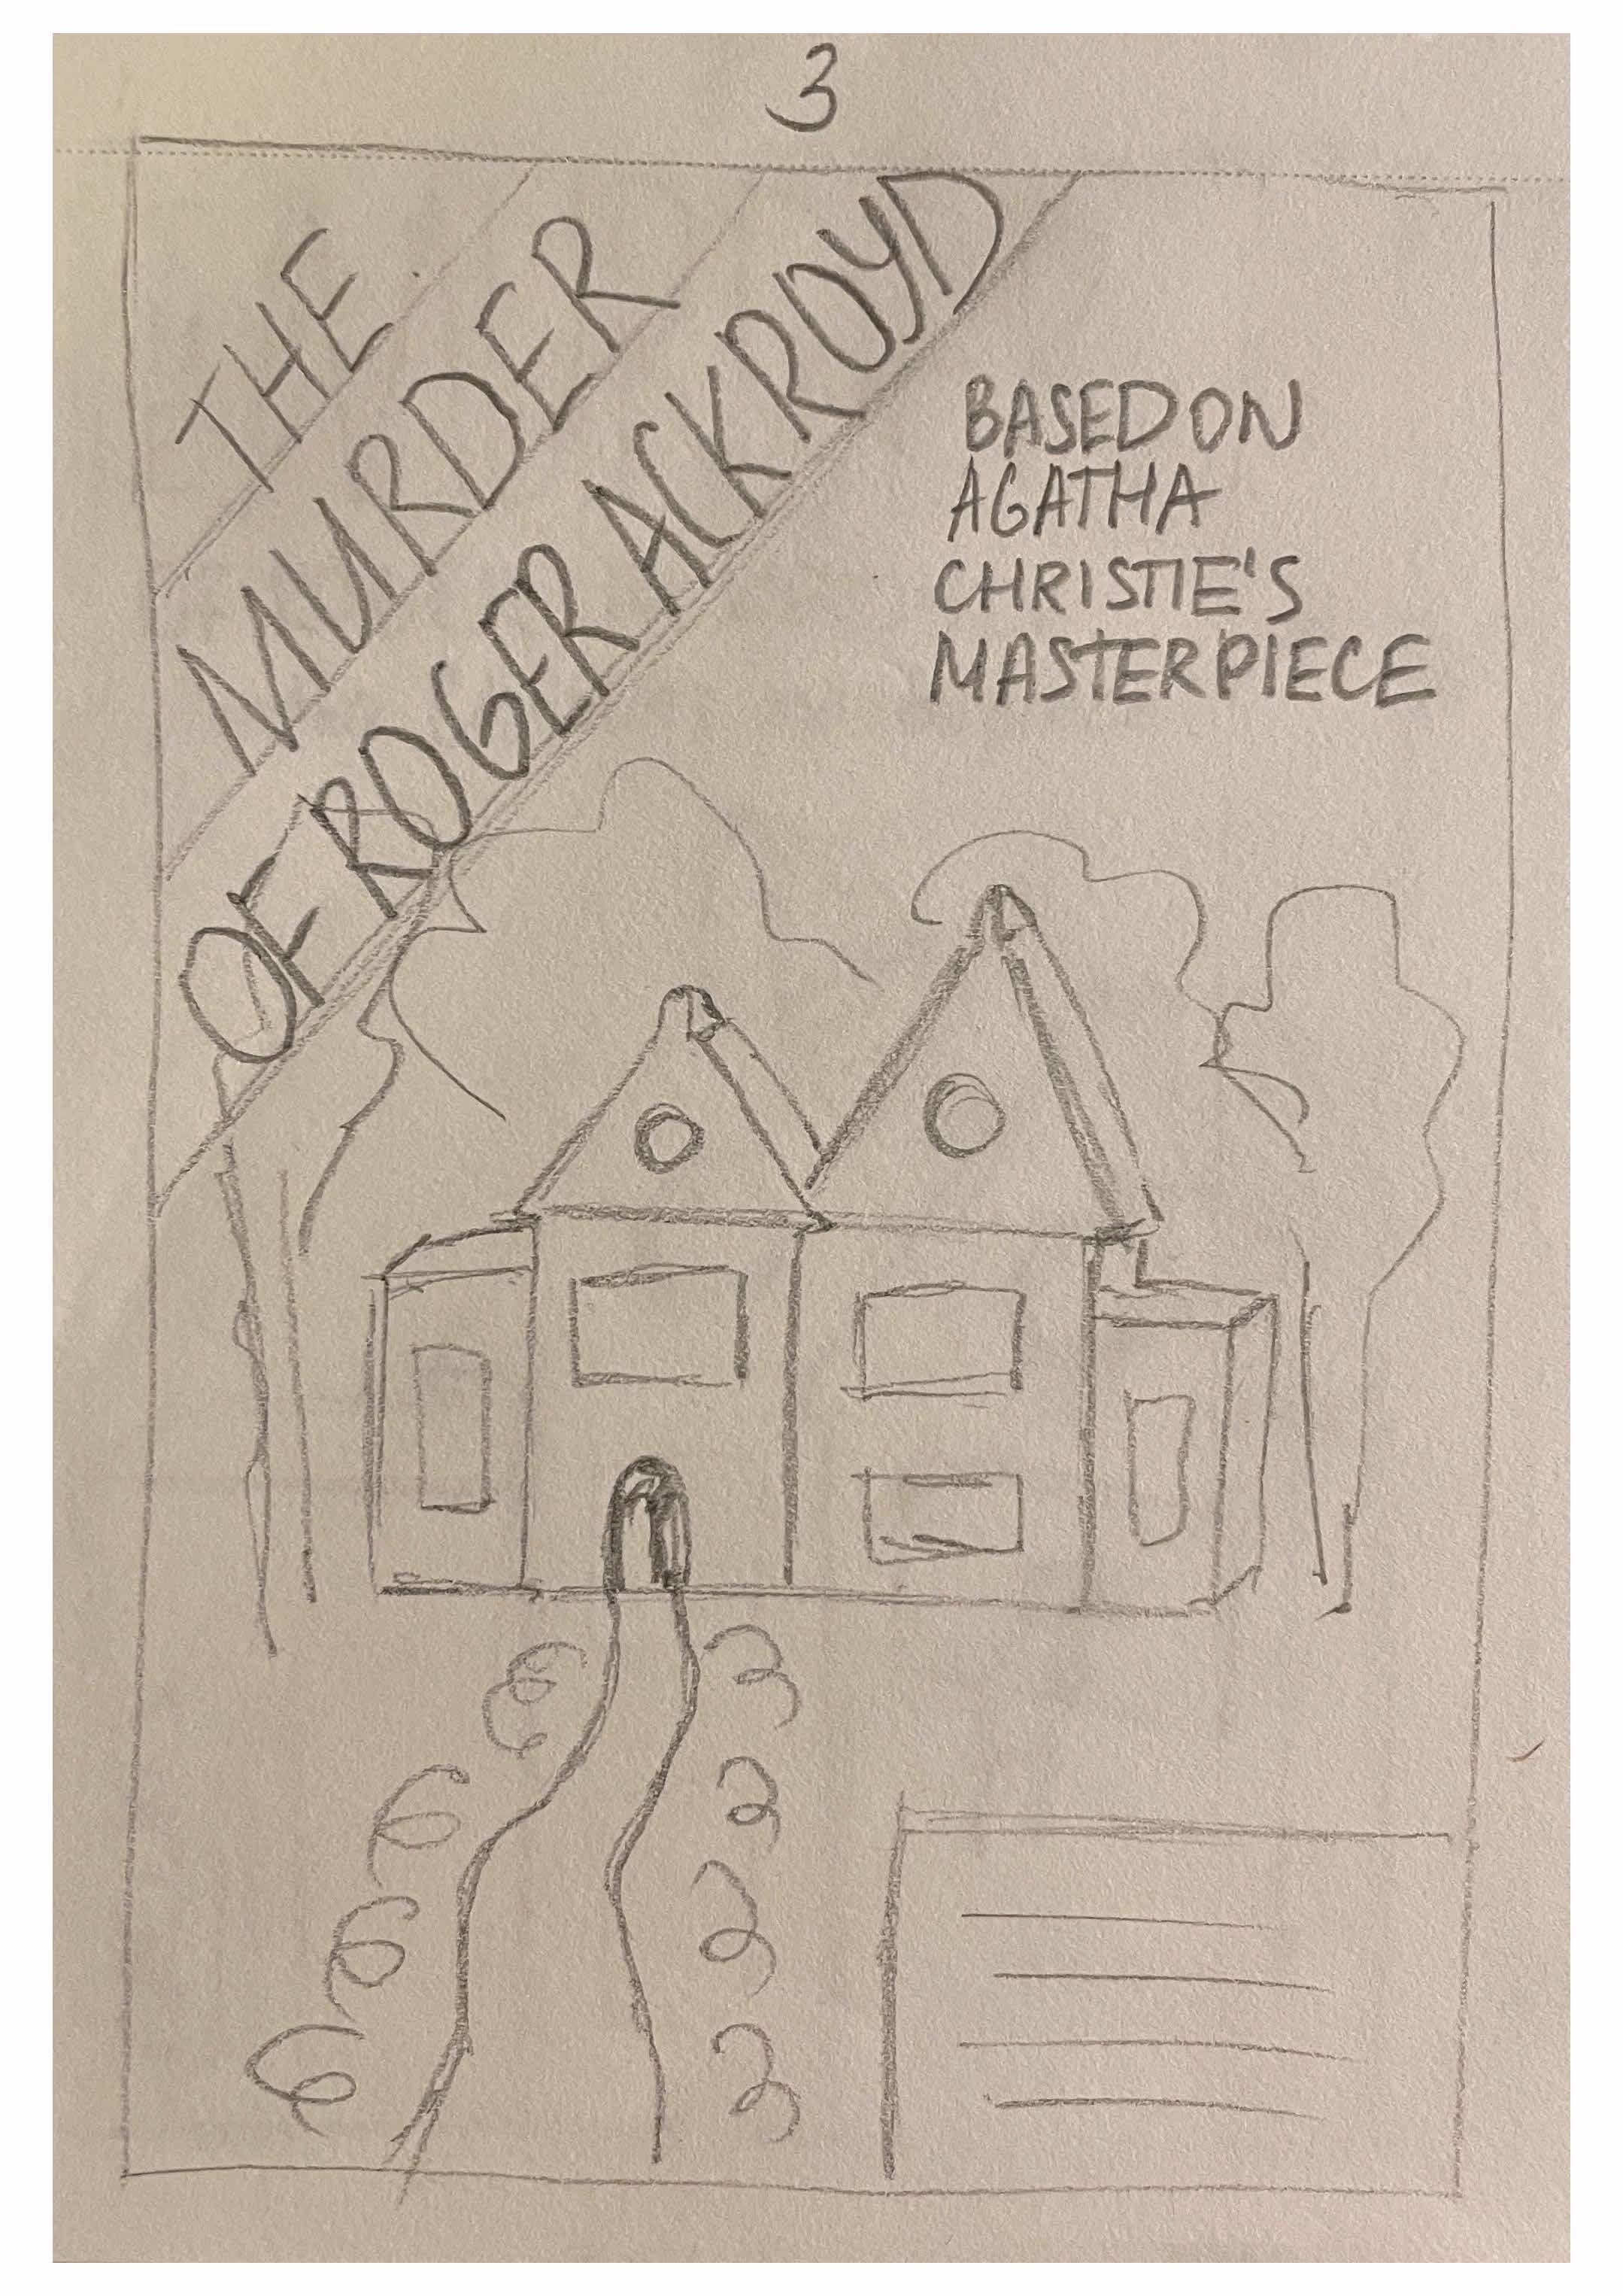 3
THE
MURDER
OF ROGER ACKROYD
BASED ON
AGATHA
CHRISTIE'S
MASTERPIECE